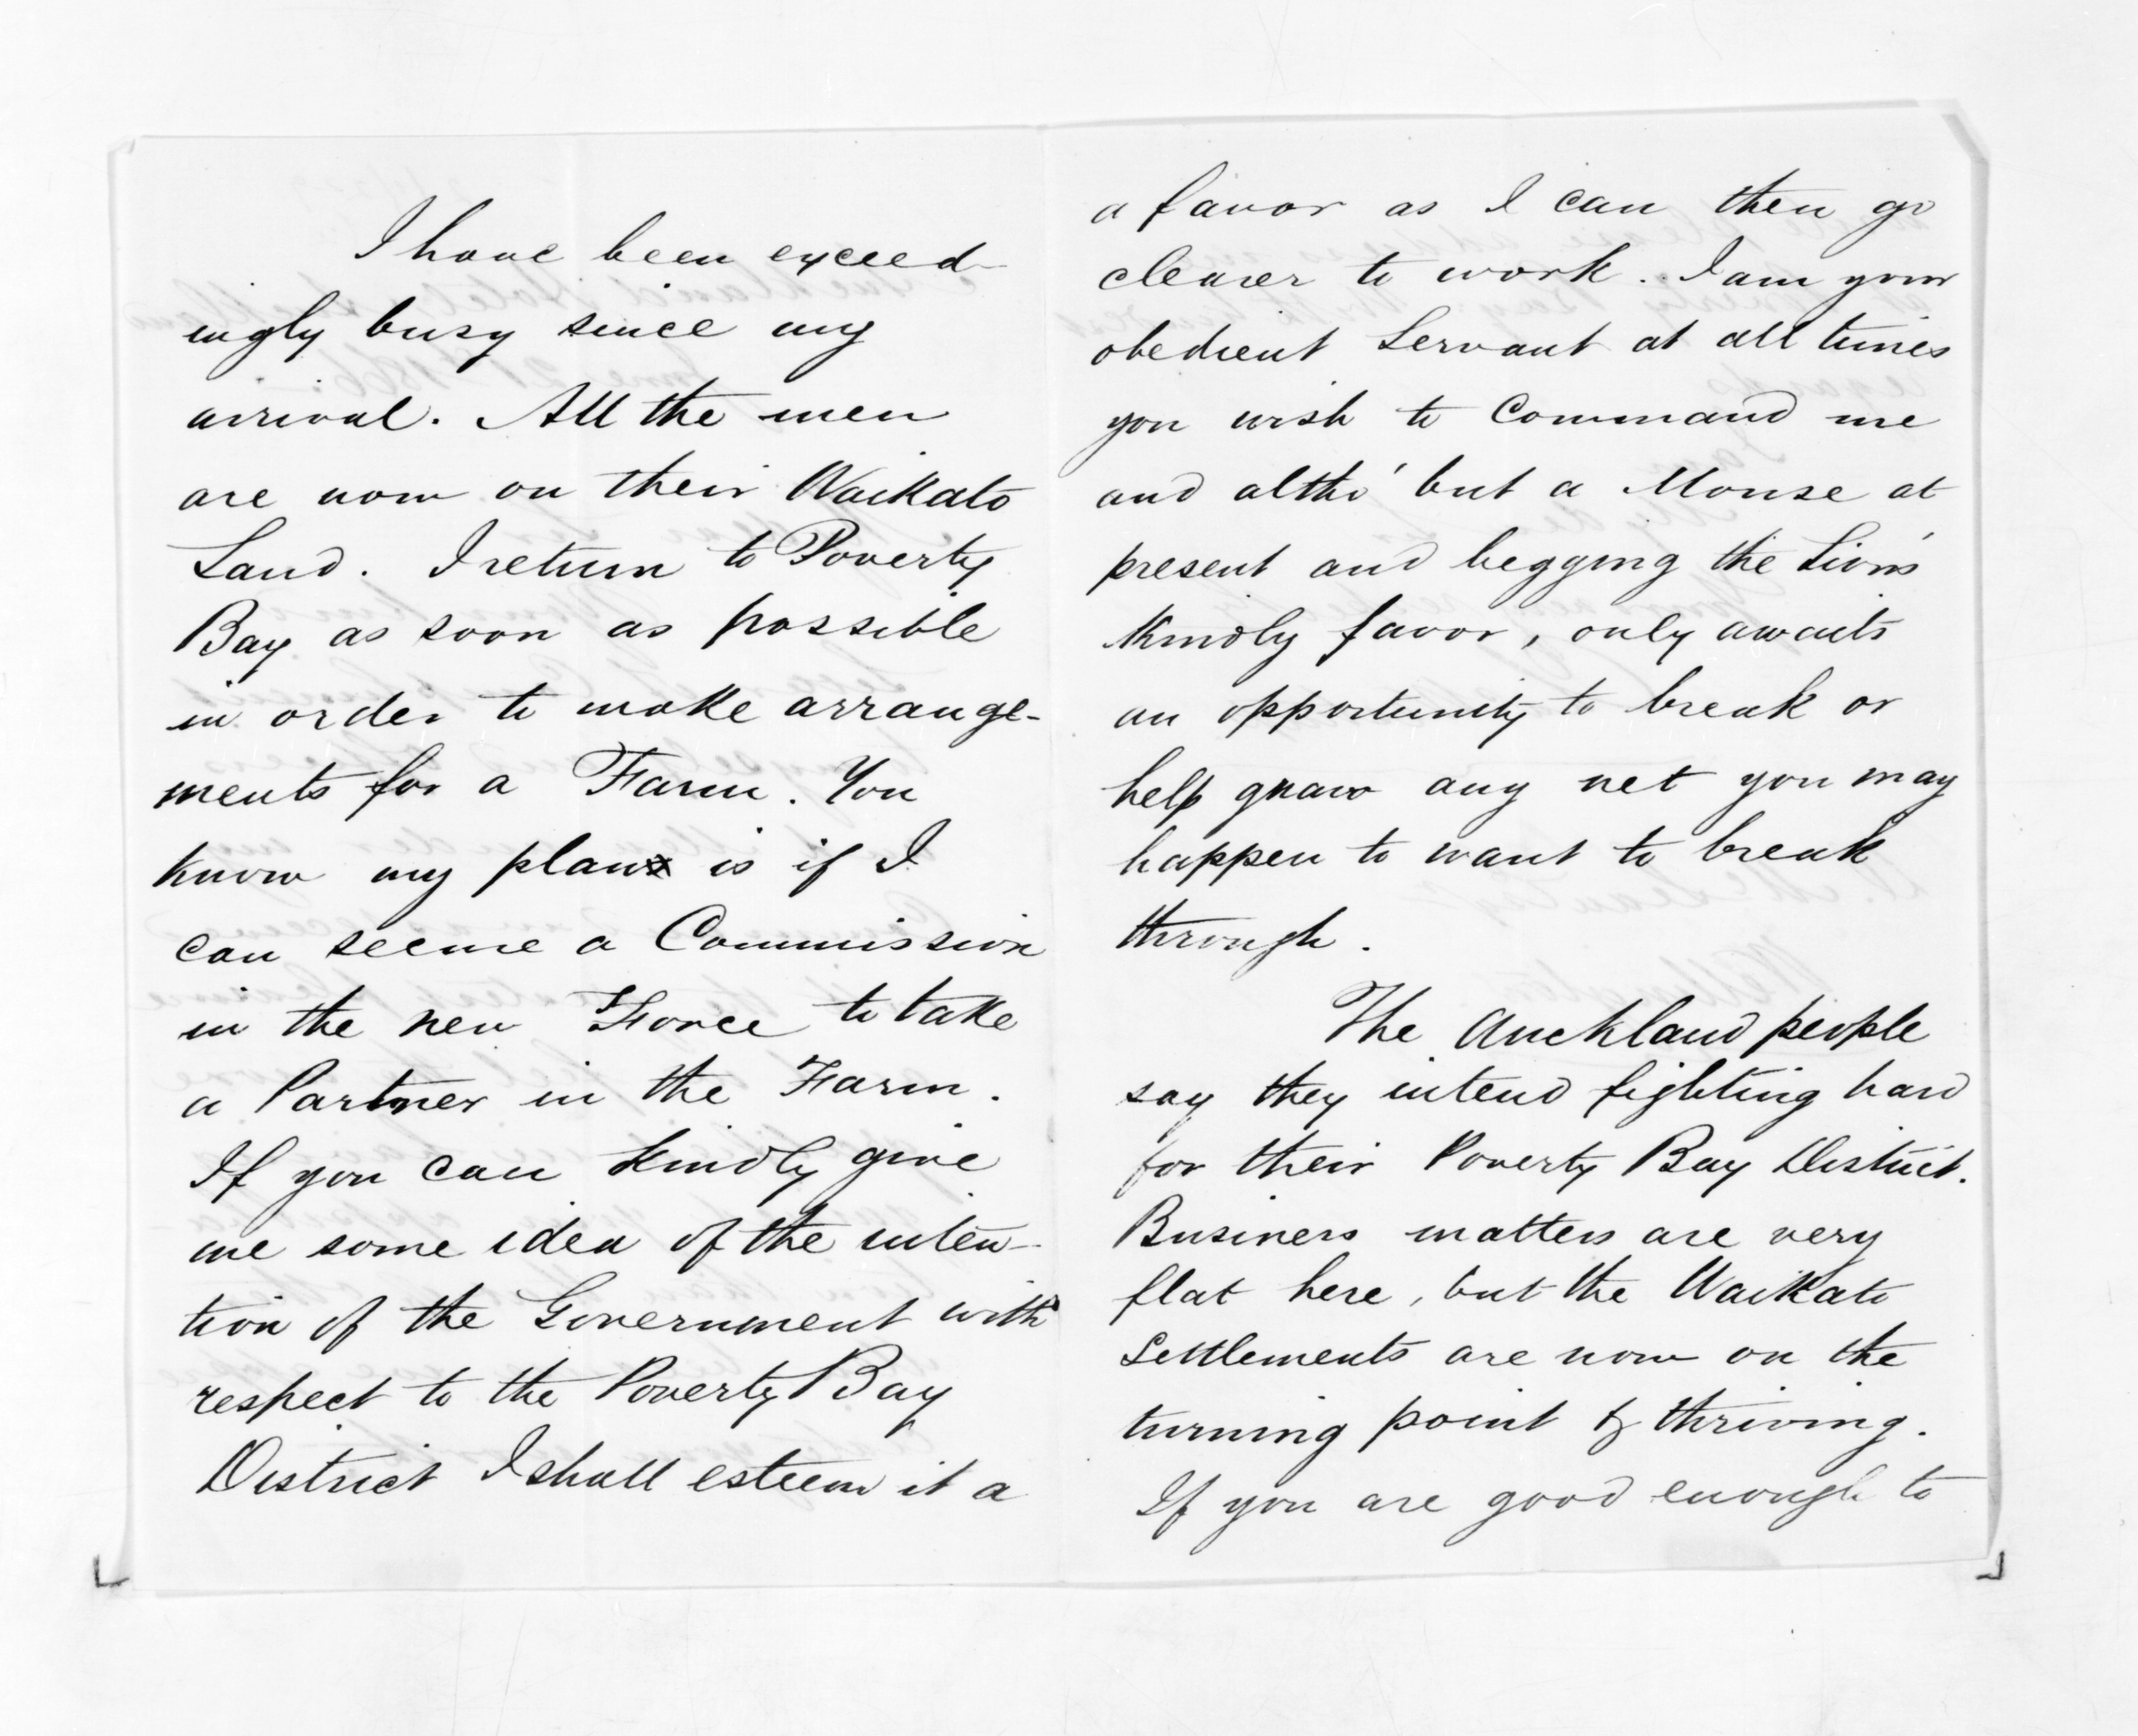 I have been exceed-
ingly busy since my
arrival. All the men
are now on their Waikato
Land. I return to Poverty
Bay as soon as possible
in order to make arrange-
ments for a Farm. You
know my plan is if I
can secure a Commission
in the new Force to take
a Partner in the Farm.
If you can kindly give
me some idea of the inten-
tion of the Government with
respect to the Poverty Bay
District I shall esteem it a
a favor as I can then go
clearer to work. I am your
obedient Servant at all times
you wish to Command me
and altho' but a Mouse at
present and begging the Lion's
kindly favor, only awaits
an opportunity to break or
help gnaw any net you may
happen to want to break
through.
The Auckland people
say they intend fighting hard
for their Poverty Bay District.
Business matters are very
flat here, but the Waikato
Settlements are now on the
turning point & thriving.
If you are good enough to